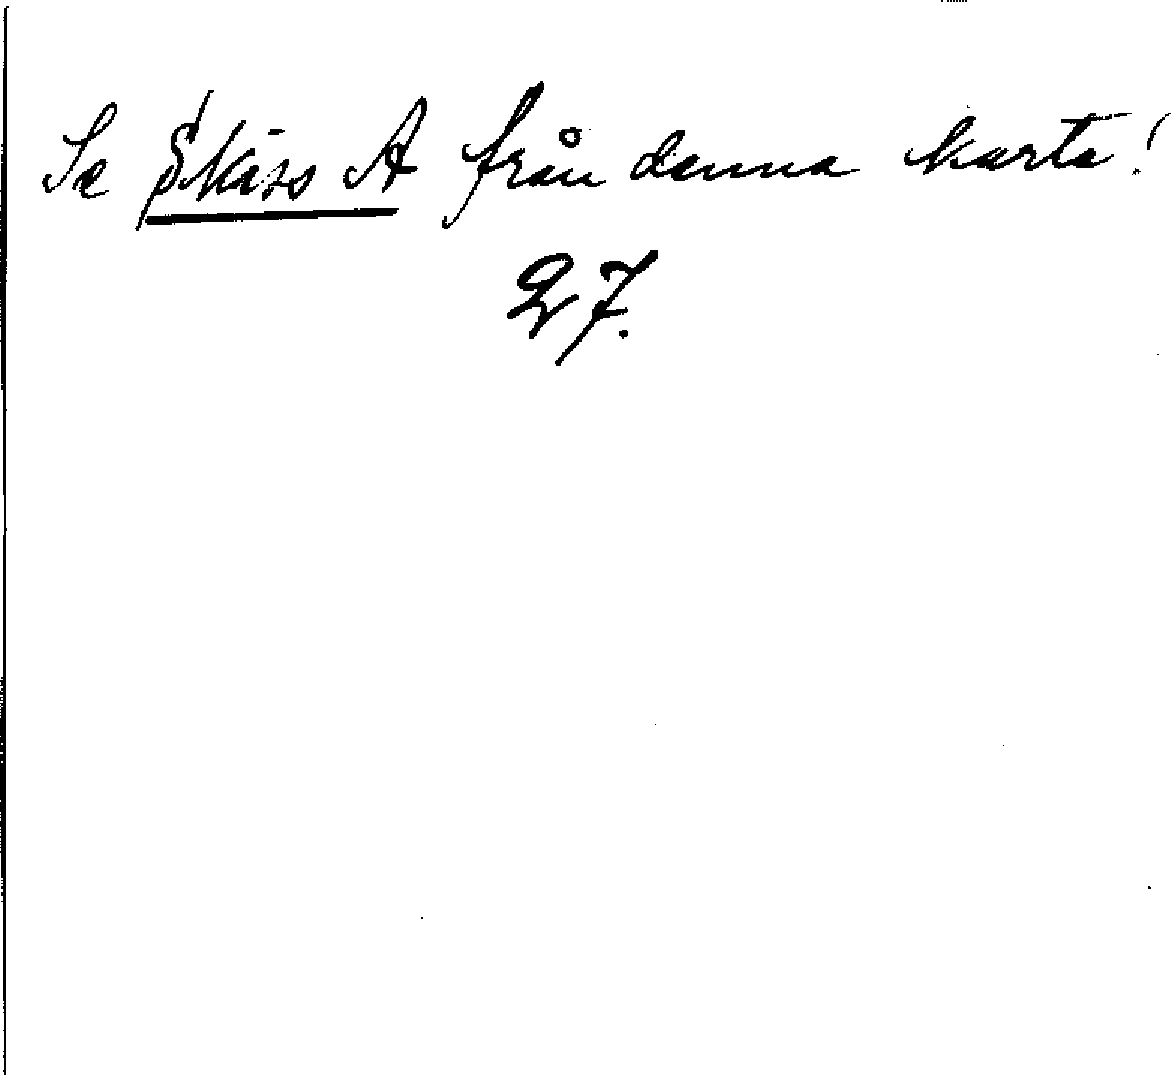 Se Skiss A från denna karta!
27.